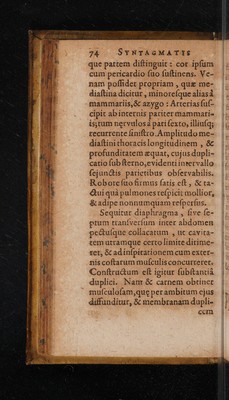 74 SYNTAGMATIS
que partem distinguit: cor ipsum
cum pericardio suo sustinens. Ve-
nam possidet propriam, quæ me-
diastina dicitur, minoresque alias à
mammariis, & azygo: Arterias sus-
cipit ab internis pariter mammari-
is; tum nęrvulos à pari sexto, illiusq;
recurrente sinistro. Amplitudo me-
diastini thoracis longitudinem, &
profunditatem æquat, cujus dupli-
catio sub sterno, evidenti intervallo
sejunctis parietibus observabilis.
Robore suo firmus satis est, & ta-
ctui quà pulmones respicit mollior,
& adipe nonnumquam respersus.
Sequitur diaphragma, sive se-
ptum transversum inter abdomen
pectusque collacatum, ut cavita-
tem utramque certo limite dirime-
ret, & ad inspirationem cum exter-
nis costarum musculis concurreret.
Constructum est igitur substantiâ
duplici. Nam & carnem obtinet
musculosam, quę per ambitum ejus
diffunditur, & membranam dupli-
cem